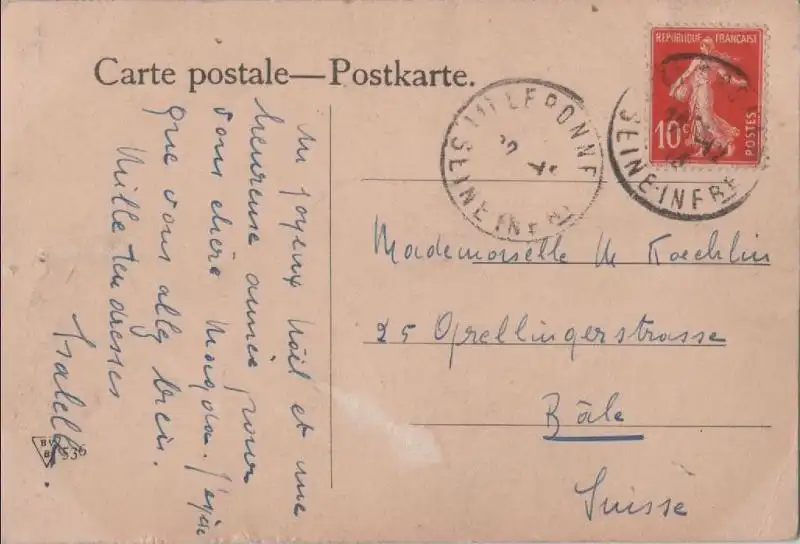 Carte postale—Postkarte.
REPUBLIQUE FRANÇAISE
10c
POSTES
LILLEBONNE
SEINE INFRE
SEINE-INFRE
Mademoiselle M Koechlin
25 Grellingerstrasse
Bâle
Suisse
un joyeux Noël et une
heureuse année pour
vous chère Magda. J'espère
que vous allez bien.
Mille tendresses
Isabelle.
BV
B
536